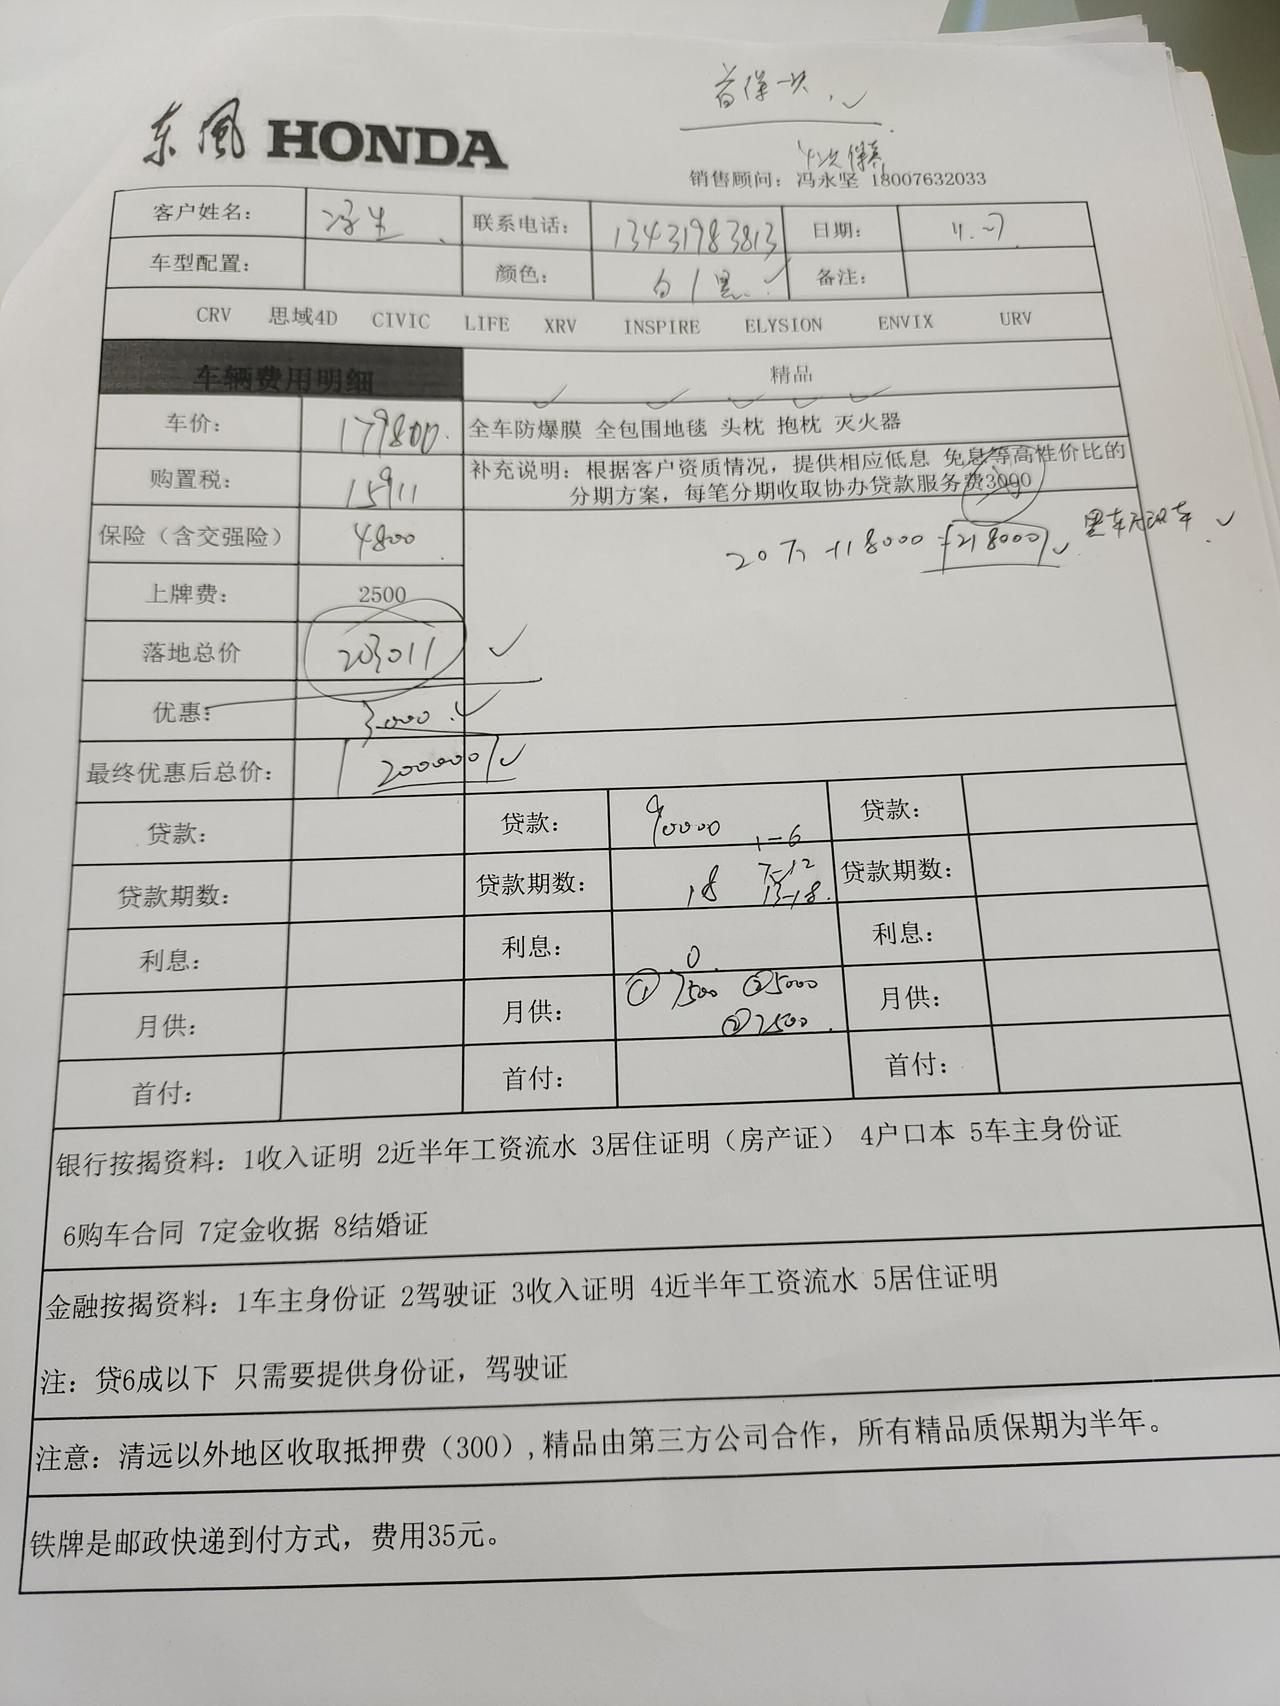 首保一次
东风 HONDA
4次保养
销售顾问：冯永坚 18007632033
客户姓名： 冯生 联系电话： 13431983813 日期：
车型配置： 颜色： 白/黑 备注：
CRV 思域4D CIVIC LIFE XRV INSPIRE ELYSION ENVIX URV
车辆费用明细 精品
车价： 179800 全车防爆膜 全包围地毯 头枕 抱枕 灭火器
购置税： 15911 补充说明：根据客户资质情况，提供相应低息 免息等高性价比的
分期方案，每笔分期收取协办贷款服务费3000
保险（含交强险） 4800 20万+18000=218000
上牌费： 2500
落地总价 203011
优惠： 3000
最终优惠后总价： 200000
贷款： 贷款： 90000 贷款：
1-6
贷款期数： 贷款期数： 18 7-12 贷款期数：
13-18
利息： 利息： 0 利息：
月供： 月供： ①7500 ②5000 月供：
③2500
首付： 首付： 首付：
银行按揭资料：1收入证明 2近半年工资流水 3居住证明（房产证） 4户口本 5车主身份证
6购车合同 7定金收据 8结婚证
金融按揭资料：1车主身份证 2驾驶证 3收入证明 4近半年工资流水 5居住证明
注：贷6成以下 只需要提供身份证，驾驶证
注意：清远以外地区收取抵押费（300），精品由第三方公司合作，所有精品质保期为半年。
铁牌是邮政快递到付方式，费用35元。